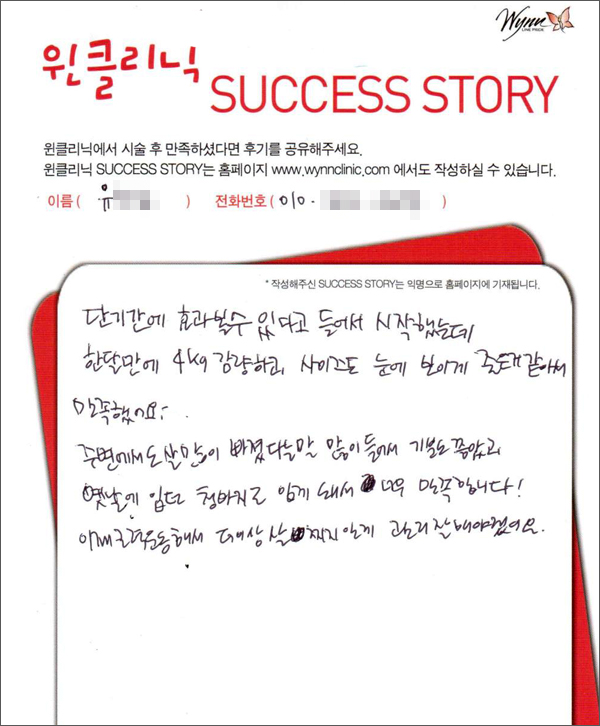 Wynn
LINE MEDI
윈클리닉
SUCCESS STORY
윈클리닉에서 시술 후 만족하셨다면 후기를 공유해주세요.
윈클리닉 SUCCESS STORY는 홈페이지 www.wynnclinic.com 에서도 작성하실 수 있습니다.
이름 ( 유 ) 전화번호 ( 010 - )
* 작성해주신 SUCCESS STORY는 익명으로 홈페이지에 기재됩니다.
단기간에 효과볼수 있다고 들어서 시작했는데
한달만에 4kg 감량하고, 사이즈도 눈에 보이게 준거 같아서
만족했어요.
주변에서도 살 많이 빠졌다는말 많이 들어서 기분도 좋았고
옛날에 입던 청바지도 입게 돼서 너무 만족합니다!
이제 운동해서 더이상 살 찌지 않게 관리 잘 해야겠어요.